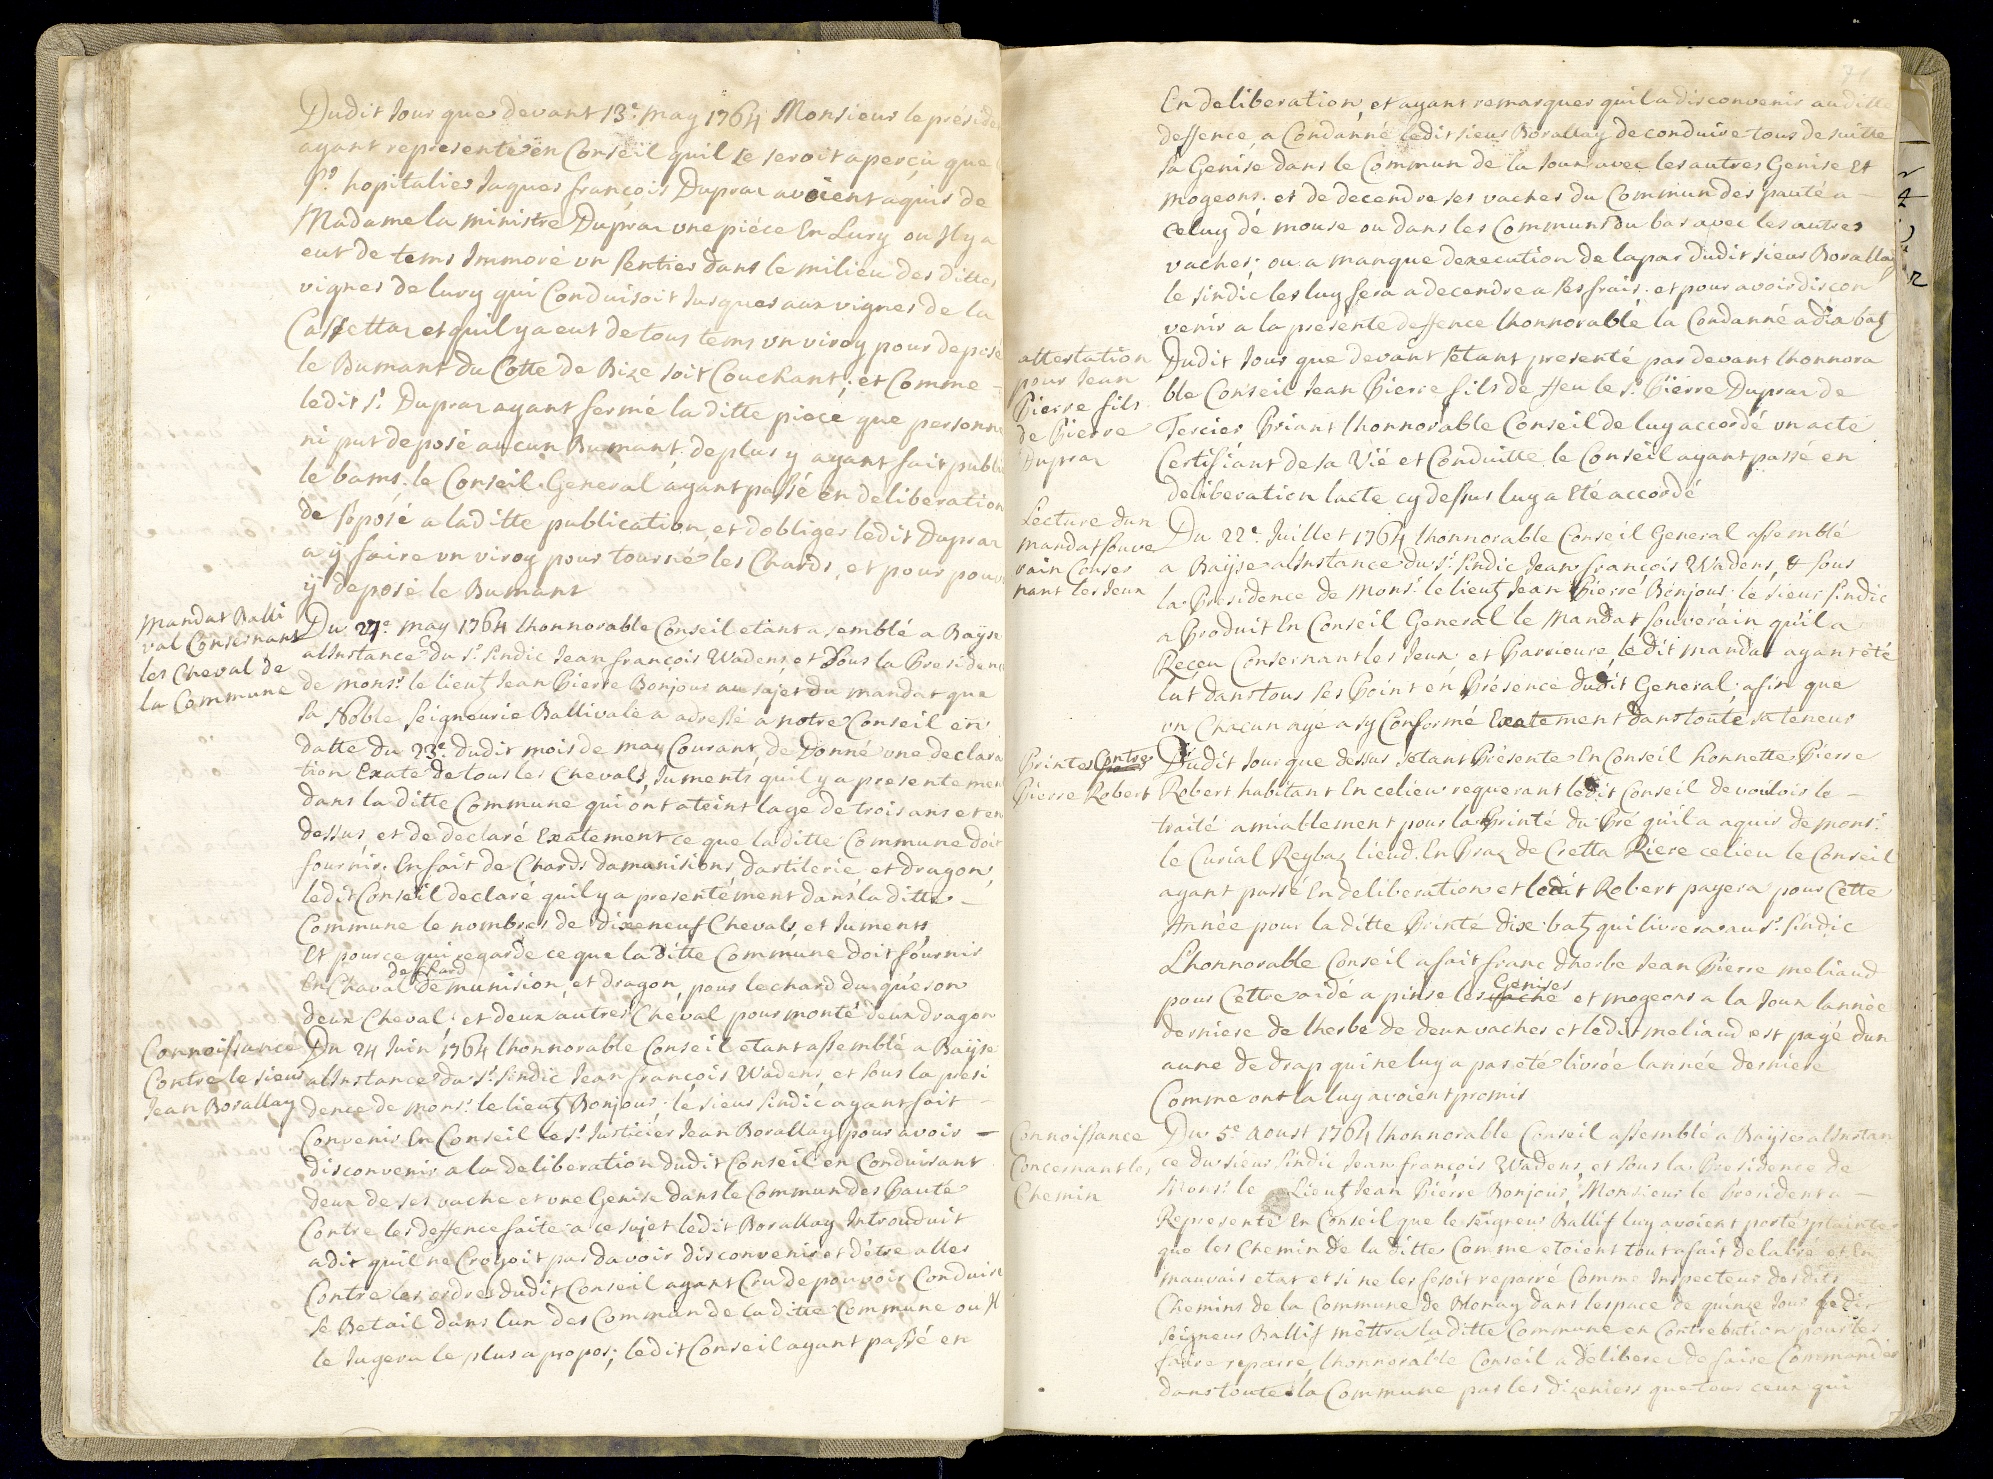 Dudit Jour que devant 13e. may 1764 Monsieur le préside
ayant representé en Conseil quil se seroit aperçû que
Sr. hopitalier Jaques françois Dupraz avoient aquis de
Madame la ministre Dupraz une piéce En Lury ou Il y a
eut de tems Immoré un sentier dans le milieu des dittes
vignes de lury qui Conduisoit Jusques aux vignes de la
Cassettaz et quil y a eut de tous tems un viroy pour deposé
le Bumant du Cotté de Bize soit Couchant; et Comme
ledit Sr. Dupraz ayant fermé la ditte piece que personne
ni put deposé aucun Bumant. deplus y ayant fait publi
le bams. le Conseil General ayant passé en deliberation
de soposé a laditte publication, et dobliger ledit Dupraz
a ÿ faire un viroy pour tourné les Chards, et pour pouv
ÿ deposé le Bumant
mandat Balli
val Consernant
les Cheval de
la Commune
Du 27e. may 1764 lhonnorable Conseil etant asemblé a Baÿse
alInstance du Sr. Sindic Jean françois Wadens et Sous la Presidence
de monsr. le lieut Jean Pierre Bonjour au sujet du mandat que
sa Noble Seigneurie Ballivale a adressé a notre Conseil en
datte du 23e dudit mois de may Courant, de Donné une declara
tion Exate de tous les Chevals, Juments quil y a presentemen
dans la ditte Commune qui ont ateint lage de trois ans et en
dessus, et de declaré Exatement ce que la ditte Commune doit
fournir; En fait de Chards damunisions, dartilerie, et dragon,
ledit Conseil declaré quil y a presentement dans la ditte
Commune le nombres de dixeneuf Chevals, et Juments
Et pource qui regarde ce que la ditte Commune doit fournir
de Chard
En Chaval de munision, et dragon, pour le chard du quéson
deux Cheval; et deux autres Cheval pour monté deux dragon
Connoissance
Contre le sieur
Jean Borallay
Du 24 Juin 1764 lhonnorable Conseil etant assemblé a Baÿse
alInstance du Sr. Sindic Jean françois Wadens, et sous la presi
dence de monsr. le lieut Bonjour; le sieur Sindic ayant fait
Convenir En Conseil le Sr. Justicier Jean Borallay pour avoir
disconvenir a la deliberation dudit Conseil en Conduisant
deux de ses vache et une Genise dans le Commun des Pauté
Contre les deffence faite a ce sujet ledit Borallay Introuduit
a dit quil ne Croyoit pas davoir disconvenir et dêtre aller
Contre les ordres dudit Conseil ayant Cru de pouvoir Conduire
se Betail dans lun des Commun de la ditte Commune ou Il
le Jugera le plus a propos; ledit Conseil ayant passé en
En deliberation, et ayant remarquer quil a disconvenir au ditte
deffence, a Condanné ledit sieur Borallay de conduire tous de suitte
sa Genise dans le Commun de la Joux avec les autres Genise Et
mogeons; et de decendre ses vaches du Commun des pauté a
celuy de mouse ou dans les Communs du bas avec les autres
vaches; ou a manque dexecution de lapar dudit sieur Borallay
le sindic les luy fera a decendre a ses frais; et pour avoir discon
venir a la présente deffence lhonnorable la Condanné a dix batz
attestation
pour Jean
Pierre fils
de Pierre
Dupraz
Dudit Jour que devant sétant presenté par devant lhonnora
ble Conseil Jean Pierre fils de ffeu le Sr. Pierre Dupraz de
Tercier Priant lhonnorable Conseil de luy accordé un acte
Certifiant de sa Vié et Conduitte. le Conseil ayant passé en
deliberation lacte cy dessus luy a Eté accordé
Lecture dun
mandat souve
rain Conser
nant les Jeux
Du 22e. Juillet 1764 lhonnorable Conseil General assemblé
a Baÿse alInstance du Sr. Sindic Jean françois Wadens, & sous
la Presidence de Monsr. le lieut Jean Pierre Bonjour. le sieur Sindic
a Produit En Conseil General le Mandat Souverain quil a
Receu Consernant les Jeux, et Parrieure, le dit mandat ayant été
lût dans tous ses Point en Présence dudit General; afin que
un Chacun aye a sy Conformé Exatement dans touté sa teneur
Printer Contre
Pierre Robert
Dudit Jour que dessus sétant Présenter En Conseil honnette Pierre
Robert habitant En celieu requerant ledit Conseil de vouloir le
traité amiablement pour la Printé du Pré quil a aquis de monsr.
le Curial Reybaz lieud. En Praz de Cretta Riere celieu le Conseil
ayant passé En deliberation et ledit Robert payera pour Cette
Année pour la ditte Printé dix batz qui livrera au Sr. Sindic
Lhonnorable Conseil a fait franc dherbe Jean Pierre meliaud
Genises
pour Cettre aidé a pinse les vache et mogeons a la Joux lannée
derniere de lherbe de deux vaches et ledit meliaud est payé dun
aune de drap qui ne luy a pas eté livrée lannée derniere
Comme ont la luy avoient promis
Connoissance
Concernant les
Chemin
Du 5e Aoust 1764 lhonnorable Conseil assemblé a Baÿse alInstan
ce du sieur Sindic Jean françois Wadens, et sous la Presidence de
Monsr. le Lieut Jean Pierre Bonjour, Monsieur le President a
Representé En Conseil que le seigneur Ballif luy avoient porté plainte
que les Chemin de la ditte Comme etoient tout a fait delabré et En
mauvais etat et si ne les fesoit reparré Comme Inspecteur desdits
Chemins de la Commune de Blonay dans lespace de quinze Jour ledit
seigneur Ballif mêttra la ditte Commune en Contrebution pour les
faire reparré, lhonnorable Conseil a deliberer de faire Commander
dans toute la Commune par les dizeniers que tous ceux qui